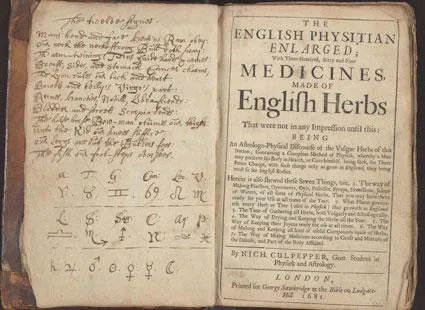 The twelve signes
Mans head and face heavens Ram obey
the neck the Bull
Arm-twining Twins guide hands
Breast, Sides, and Stomack Cancer claims,
The Lyon rules back and heart
Bowels and belly's Virgo's part:
Reins, Haunches, Navell, Libra tends:
Bladder and Secret Scorpio
The Bow-man thighs
unto the knees
our Leggs are but the Butlers
The fish our feet
a. T. G. Can. Leo. V.
♈ ♉ ♊ ♋ ♌ ♍
L. S. Sag. C. Aq. P.
♎ ♏ ♐ ♑ ♒ ♓
♄ ♃ ♂ ☉ ♀ ☿ ☽
THE
ENGLISH PHYSITIAN
ENLARGED;
With Three Hundred, Sixty and Nine
MEDICINES,
MADE OF
English Herbs
That were not in any Impression until this:
BEING
An Astrologo-Physical Discourse of the Vulgar Herbs of this
Nation; Containing a Compleat Method of Physick, whereby a Man
may preserve his Body in Health, or Cure himself, being sick, for Three
Pence Charge, with such things only as grow in England, they being
most fit for English Bodies.
Herein is also shewed these Seven Things, viz. 1. The way of
Making Plaisters, Oyntments, Oyls, Pultisses, Syrups, Decoctions, Juleps
or Waters, of all sorts of Physical Herbs, That you may have them
ready for your Use at all times of the Year. 2. What Planet govern-
eth every Herb or Tree (used in Physick) that groweth in England.
3. The Time of Gathering all Herbs, both Vulgarly and Astrologically.
4. The Way of Drying and Keeping the Herbs all the Year. 5. The
Way of Keeping their Juyces ready for use at all times. 6. The Way
of Making and Keeping all kind of useful Compounds made of Herbs.
7. The Way of Mixing Medicines according to Cause and Mixture of
the Disease, and Part of the Body Afflicted.
By NICH. CULPEPPER, Gent. Student in
Physick and Astrology.
LONDON,
Printed for George Sawbridge at the Bible on Ludgate-
Hill 1681.